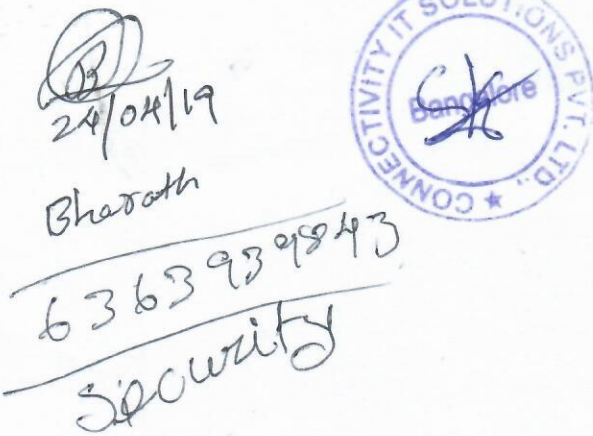 24/04/19
Bharath
6363939843
Security
CONNECTIVITY IT SOLUTIONS PVT. LTD., ★
Bangalore